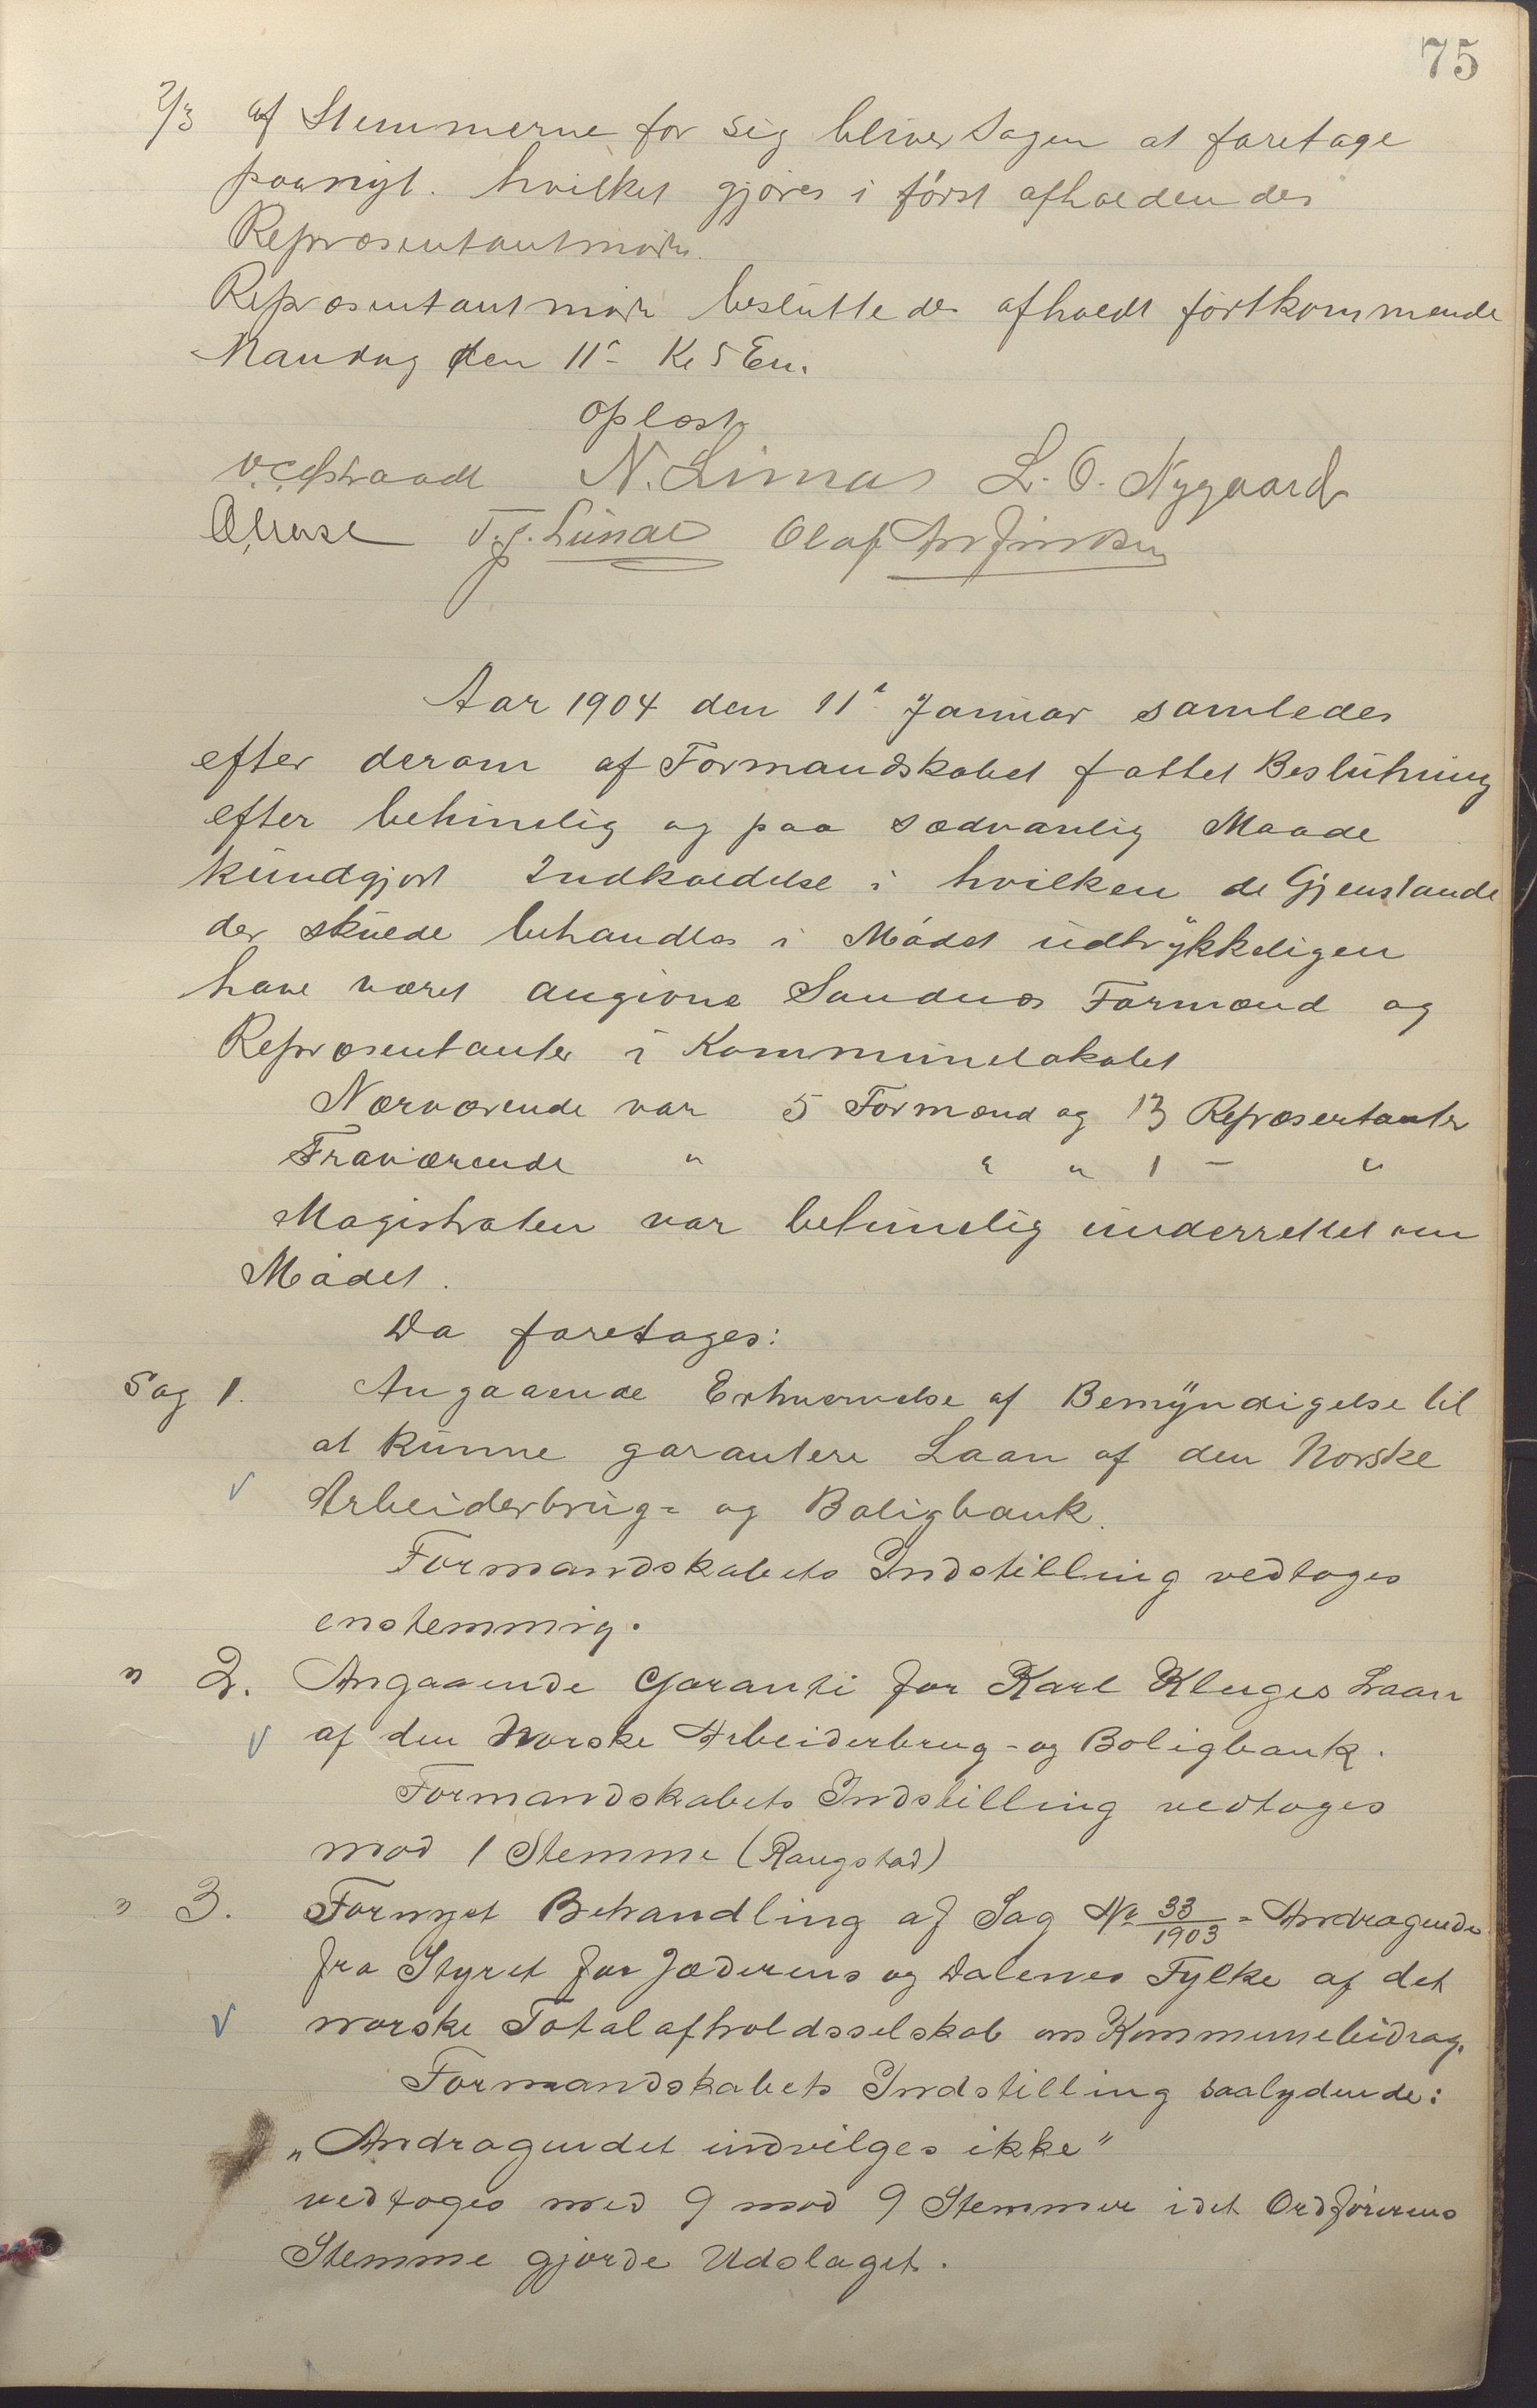 75
2/3 af Stemmerne for sig bliver Sagen at foretage
paanyt. hvilket gjøres i først afholdendes
Repræsentantmøde.
Repræsentantmøde besluttedes afholdt førstkommende
Mandag den 11te Kl 5 Em.
Oplæst
N. Simas L. O. Nygaard
T. J. Lunde Olaf
Aar 1904 den 11te Januar samledes
efter derom af Formandskabet fattet Beslutning
efter betimelig og paa sædvanlig Maade
kundgjort Indkaldelse i hvilken de Gjenstande
der skulde behandles i Mødet udtrykkeligen
have været angivne Sandnes Formænd og
Repræsentanter i Kommunelokalet
Nærværende var 5 Formænd og 13 Repræsentanter
Fraværende " " " 1 – "
Magistraten var betimelig underrettet om
Mødet.
Da foretages:
Sag 1. Angaaende Erhvervelse af Bemyndigelse til
at kunne garantere Laan af den Norske
Arbeiderbrug= og Boligbank.
Formandskabets Indstilling vedtoges
enstemmig.
" 2. Angaaende Garanti for Karl Kluges Laan
af den Norske Arbeiderbrug- og Boligbank.
Formandskabets Indstilling vedtoges
mod 1 Stemme (Raugstad)
" 3. Fornyet Behandling af Sag No 33/1903 = Andragende
fra Styret for Jæderens og Dalenes Fylke af det
norske Totalafholdsselskab om Kommunebidrag.
Formandskabets Indstilling saalydende:
„Andragendet indvilges ikke"
vedtoges med 9 mod 9 Stemmer idet Ordførerens
Stemme gjorde Udslaget.